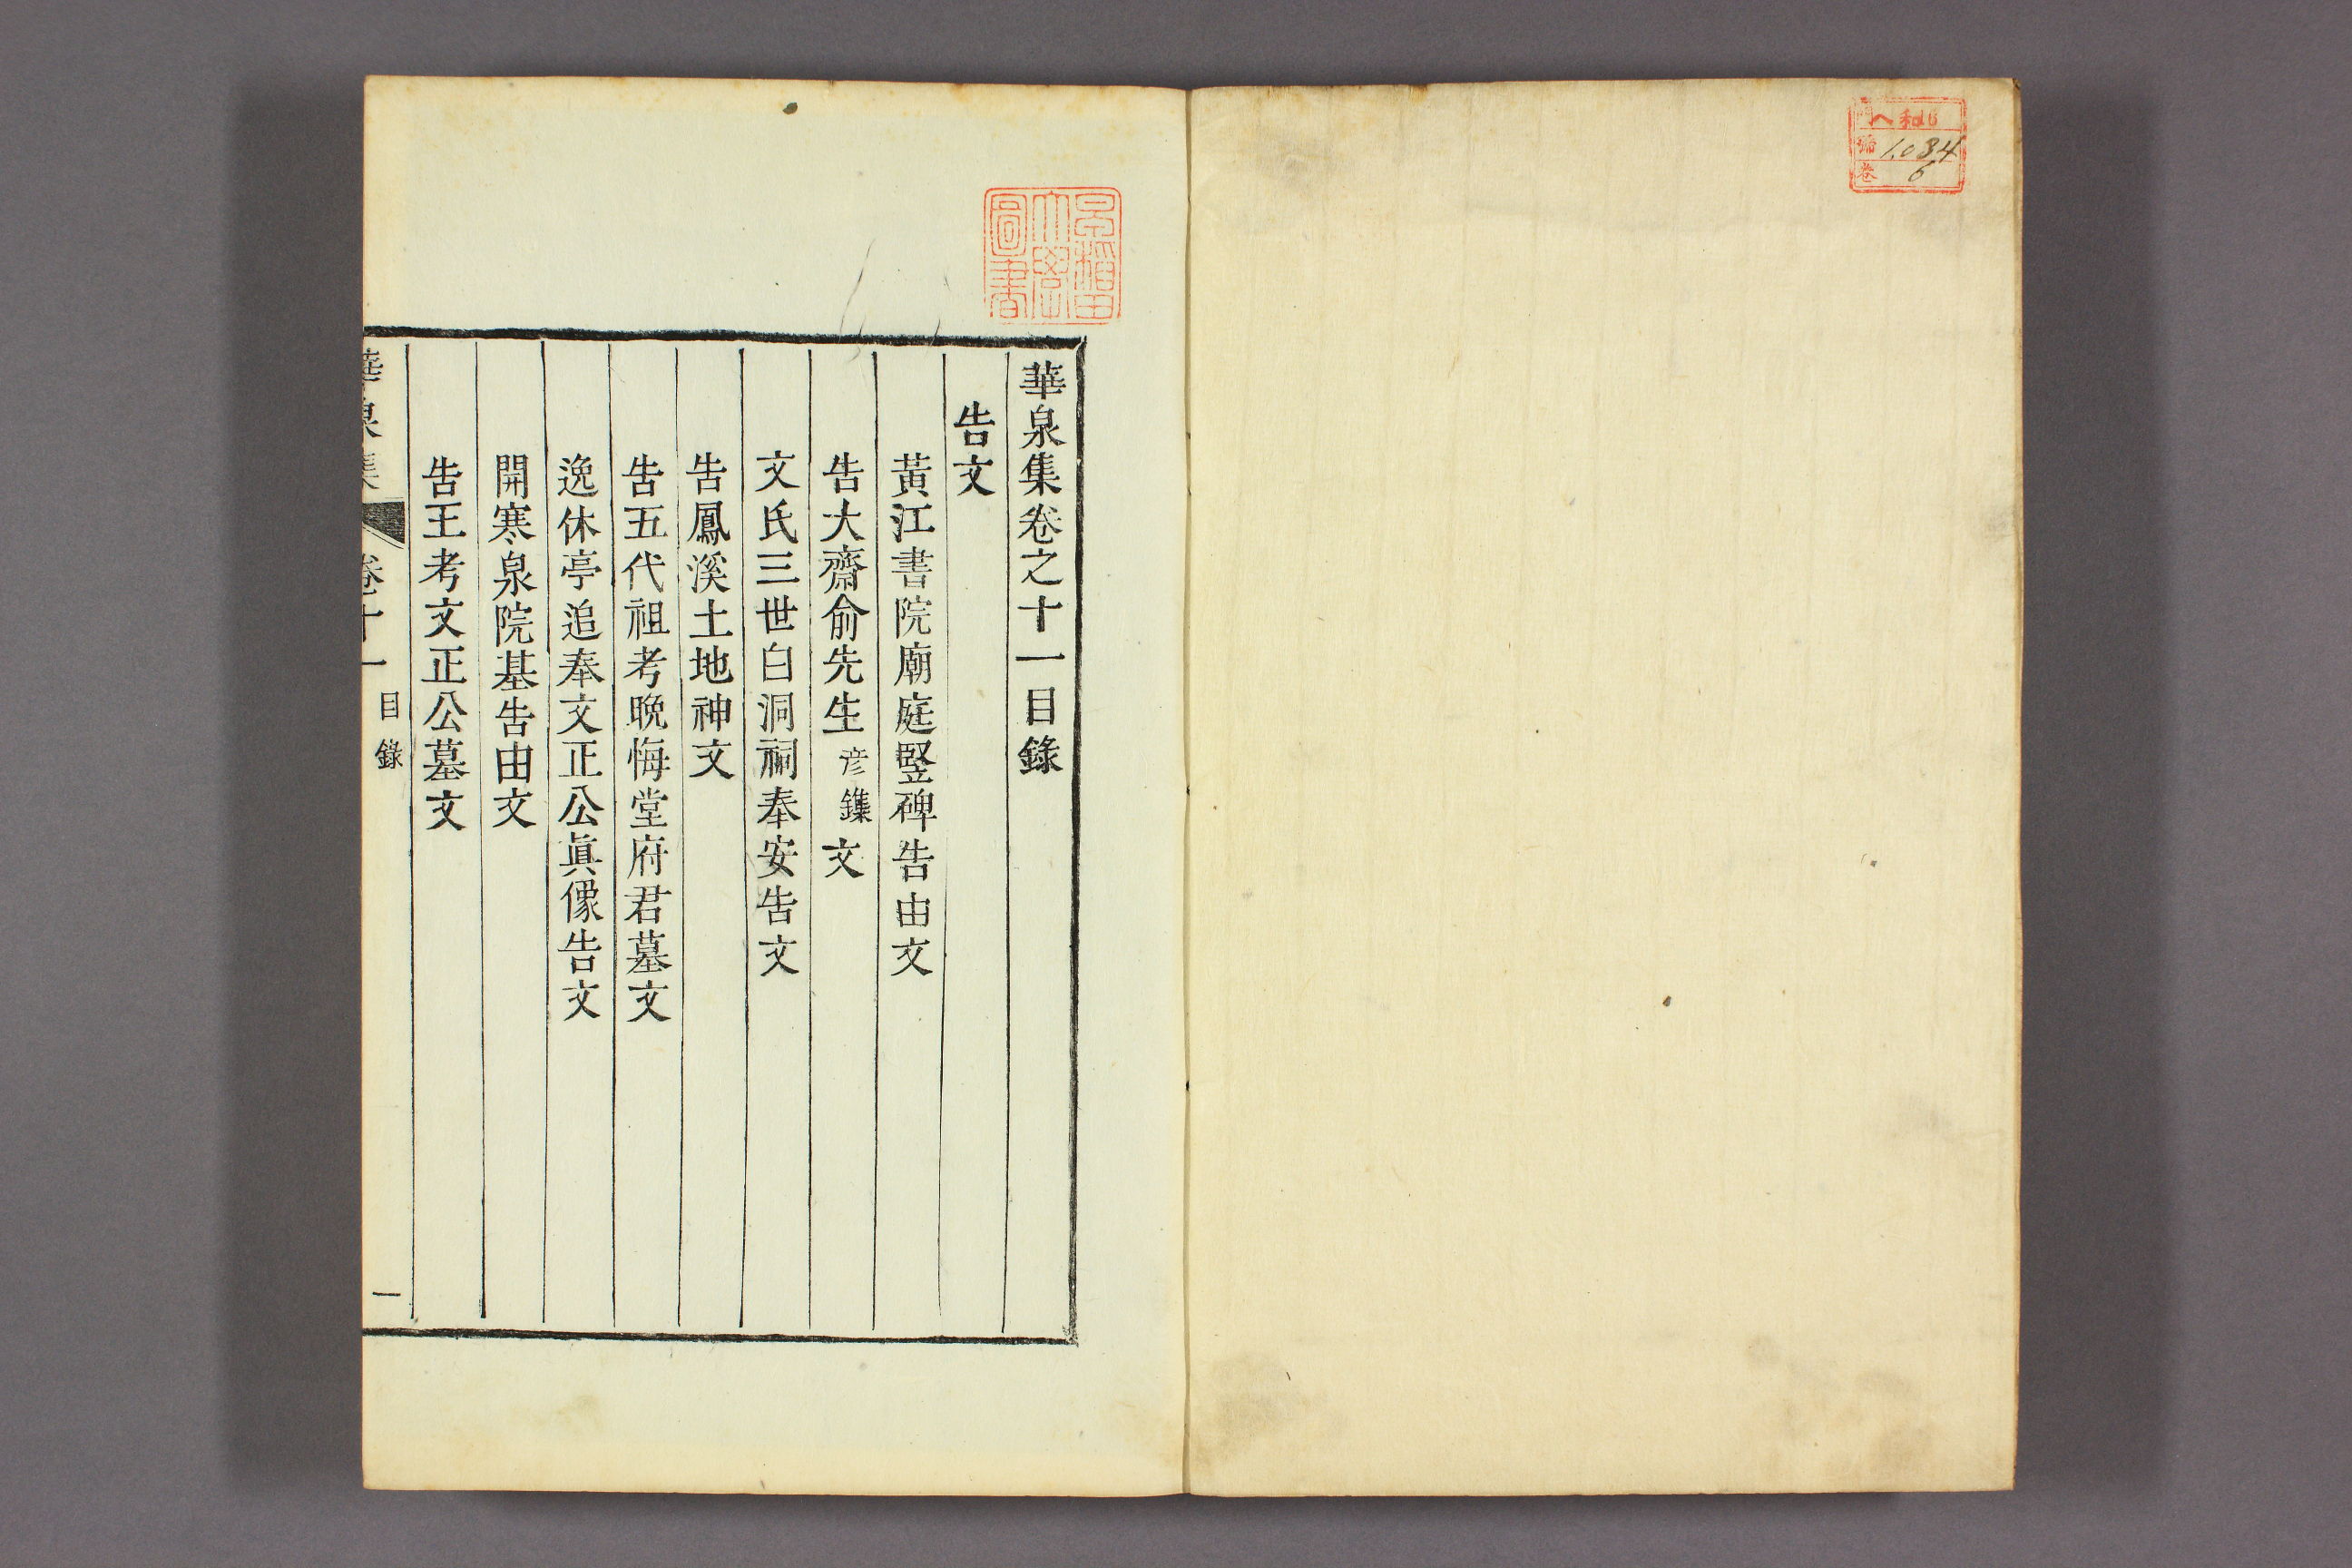 ヘ16
號 1,034
卷 6
早稲田
大學
圖書
華泉集卷之十一目錄
告文
黃江書院廟庭竪碑告由文
告大齋俞先生彦鏶文
文氏三世白洞祠奉安告文
告鳳溪土地神文
告五代祖考晩悔堂府君墓文
逸休亭追奉文正公眞像告文
開寒泉院基告由文
告王考文正公墓文
華泉集 卷十一 目錄 一